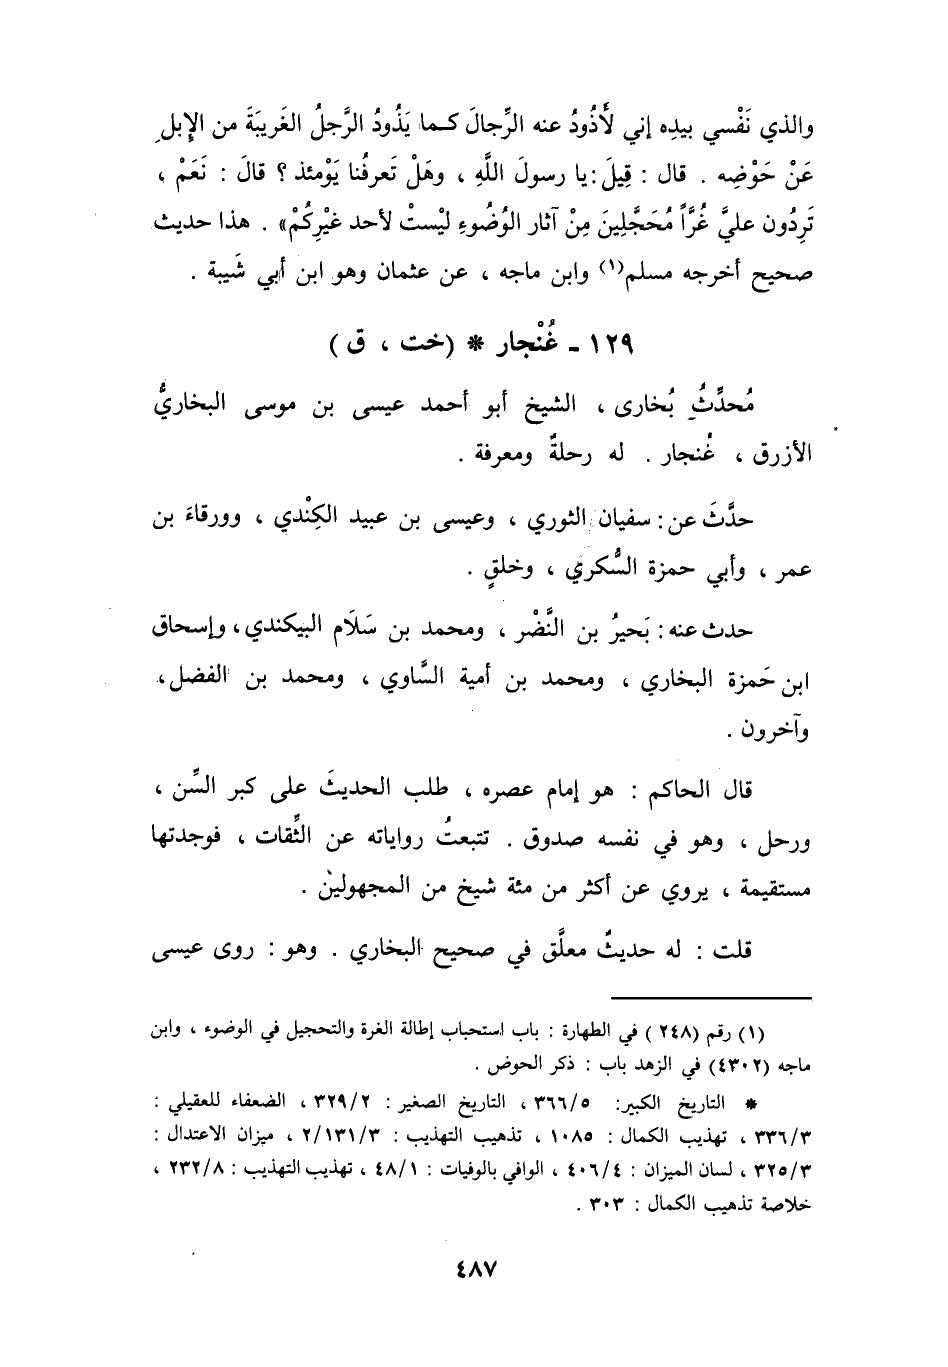 والذي نَفْسي بيدِه إني لَأَذُودُ عنه الرِّجالَ كـما يَذُودُ الرَّجلُ الغَريبَةَ من الإبلِ
عَنْ حَوْضِه . قال : قِيلَ: يا رسولَ اللَّهِ ، وهَلْ تَعرفُنا يَوْمئذ ؟ قالَ : نَعَمْ ،
تَرِدُون عليَّ غُرَّاً مُحَجَّلِينَ مِنْ آثار الوُضُوءِ ليْستْ لأحد غيْرِكُمْ» . هذا حديث
صحيح أخرجه مسلم(١) وابن ماجه ، عن عثمان وهو ابن أبي شَيبة .
١٢٩ ـ غُنْجار * (خت ، ق )
مُحدِّثُ بُخارى ، الشيخ أبو أحمد عيسى بن موسى البخاريُّ
الأزرق ، غُنجار . له رحلةٌ ومعرفة .
حدَّثَ عن: سفيان الثوري ، وعيسى بن عبيد الكِنْدي ، وورقاءَ بن
عمر ، وأبي حمزة السُّكري ، وخلقٍ .
حدث عنه: بَحيرُ بن النَّضْر ، ومحمد بن سَلَام البيكندي، وإسحاق
ابن حَمزة البخاري ، ومحمد بن أمية السَّاوي ، ومحمد بن الفضل،
وآخرون .
قال الحاكم : هو إمام عصره ، طلب الحديثَ على كبر السِّن ،
ورحل ، وهو في نفسه صدوق . تتبعتُ رواياته عن الثِّقات ، فوجدتها
مستقيمة ، يروي عن أكثر من مئة شيخ من المجهولين .
قلت : له حديثٌ معلَّق في صحيح البخاري . وهو : روى عيسى
(١) رقم (٢٤٨ ) في الطهارة : باب استحباب إطالة الغرة والتحجيل في الوضوء ، وابن
ماجه (٤٣٠٢) في الزهد باب : ذكر الحوض .
* التاريخ الكبير: ٣٦٦/٥ ، التاريخ الصغير : ٣٢٩/٢ ، الضعفاء للعقيلي :
٣٣٦/٣ ، تهذيب الكمال : ١٠٨٥ ، تذهيب التهذيب : ٢/١٣١/٣ ، ميزان الاعتدال :
٣٢٥/٣ ، لسان الميزان : ٤٠٦/٤ ، الوافي بالوفيات : ٤٨/١ ، تهذيب التهذيب : ٢٣٢/٨ ،
خلاصة تذهيب الكمال : ٣٠٣ .
٤٨٧